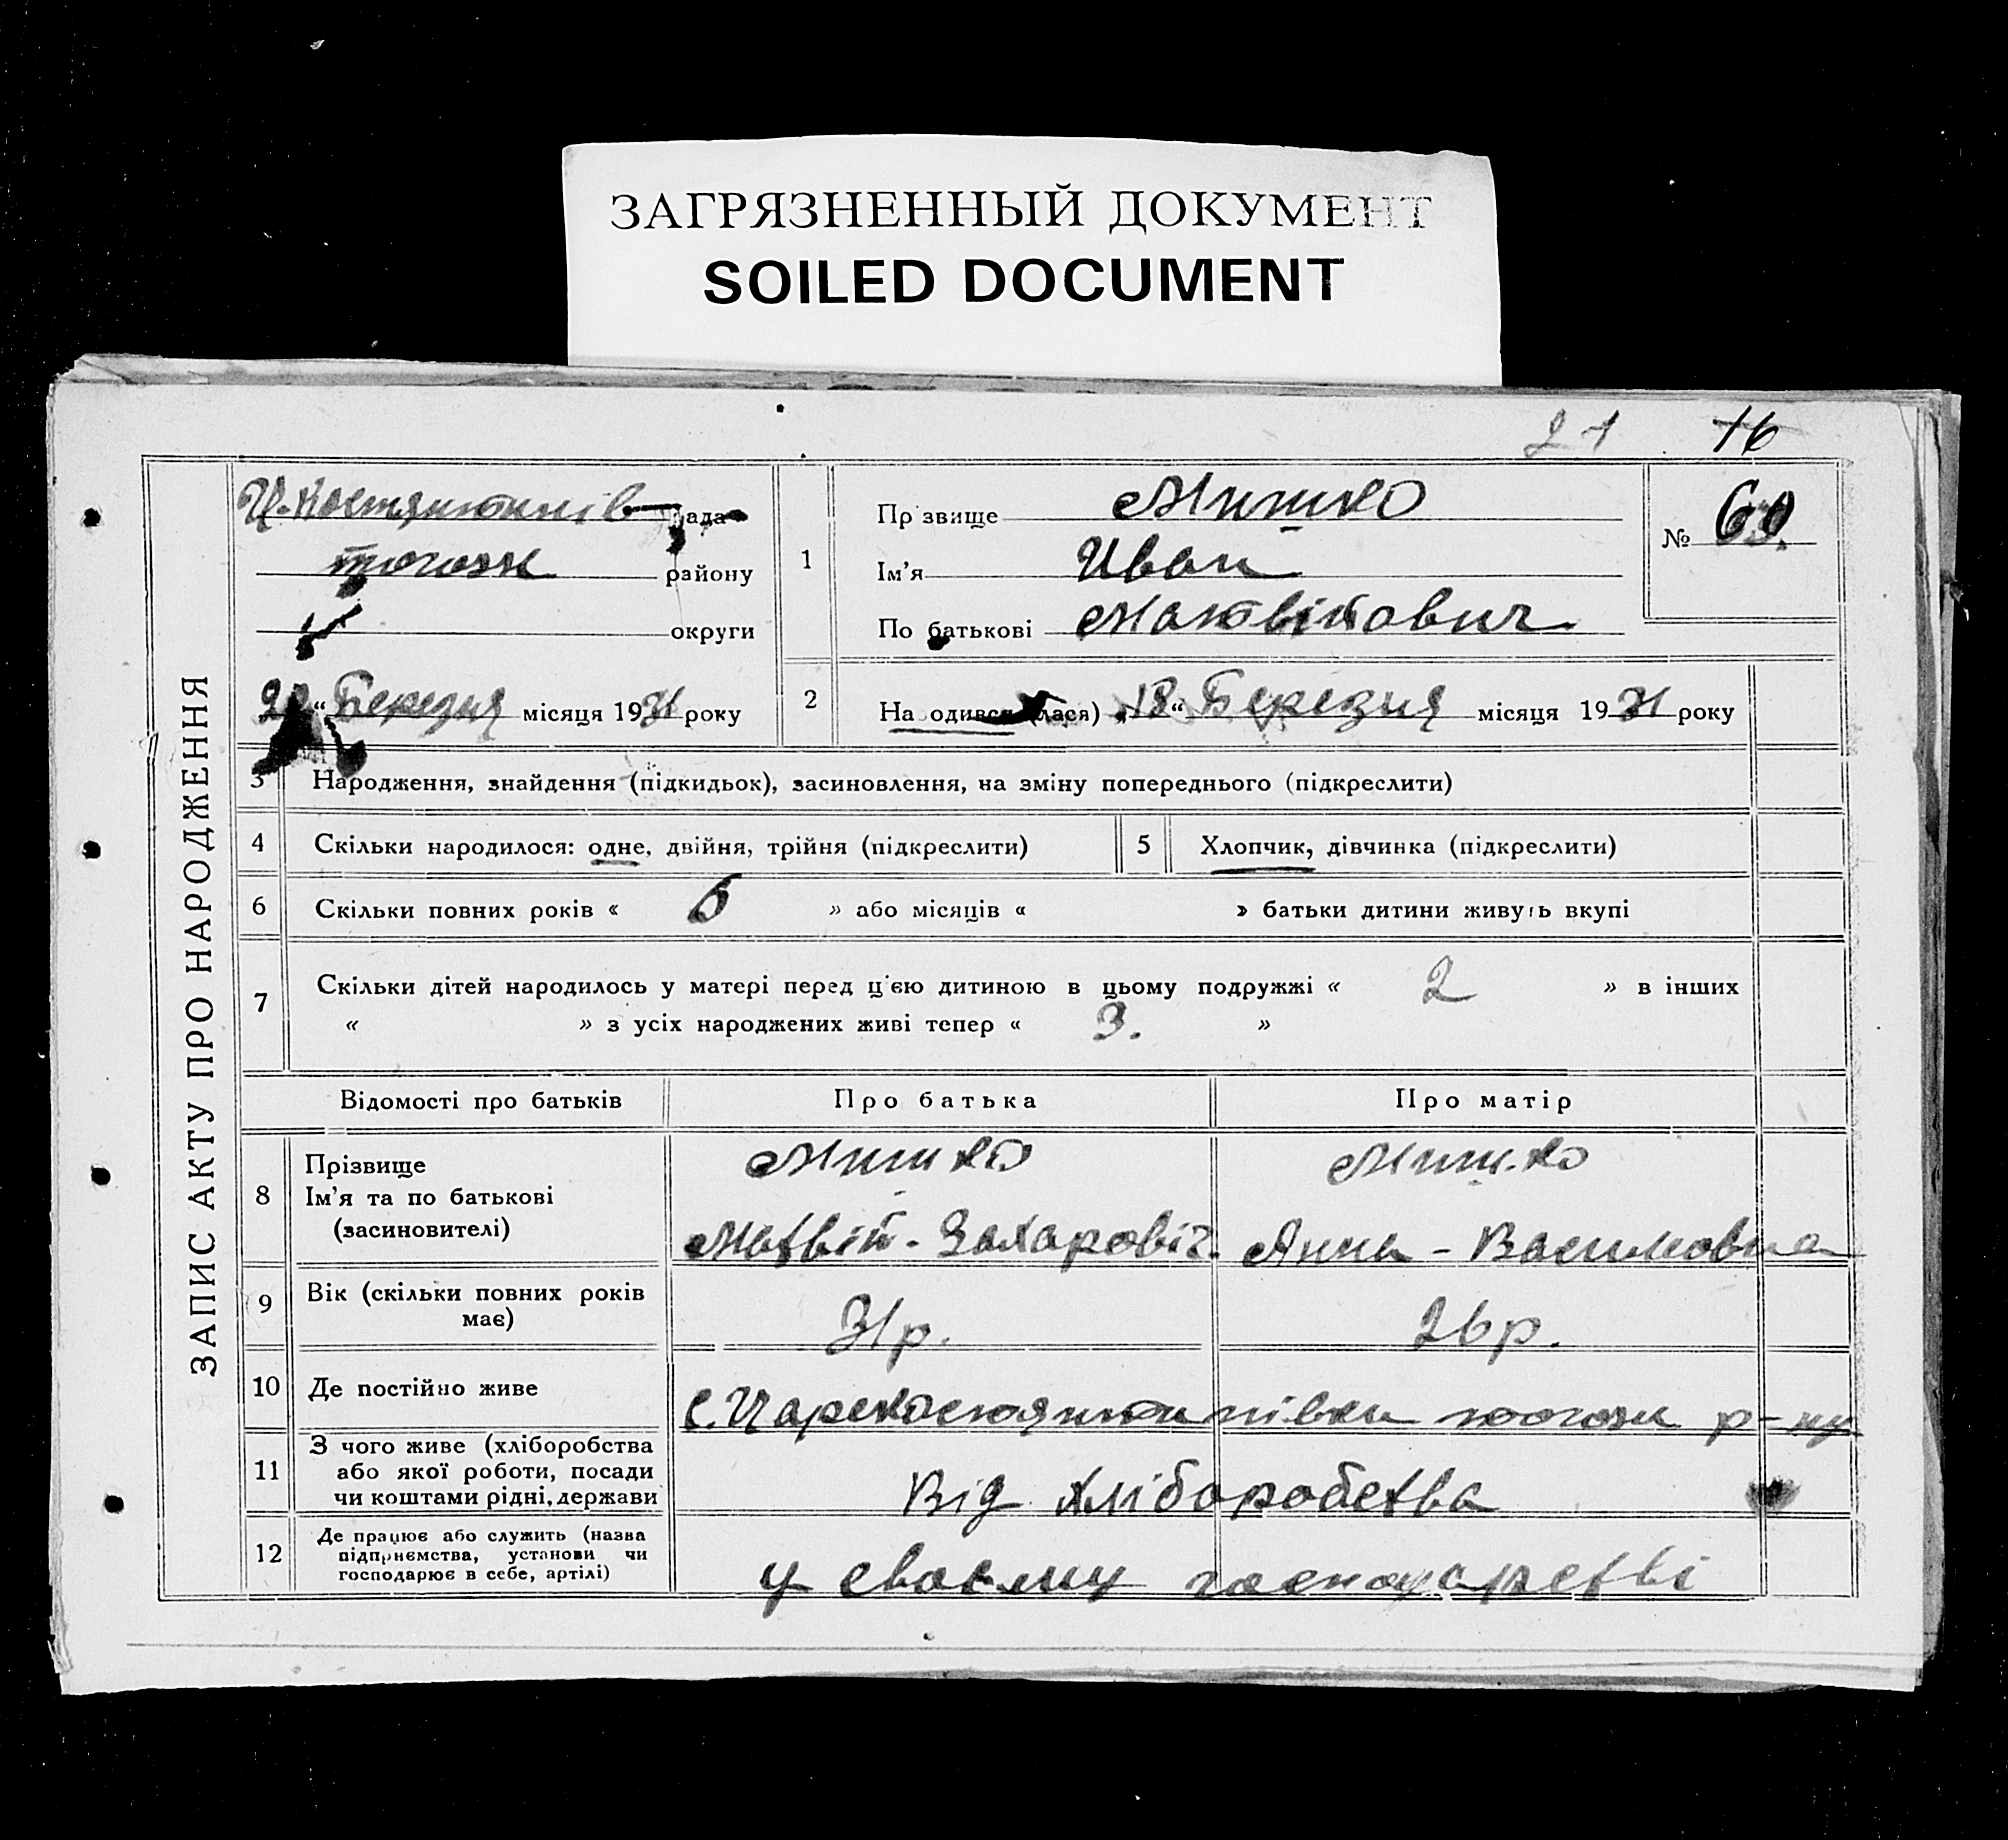 ЗАГРЯЗНЕННЫЙ ДОКУМЕНТ
SOILED DOCUMENT
21 16
ЗАПИС АКТУ ПРО НАРОДЖЕННЯ
Ц.Костянтинів рада
тогож району
округи
“ Березня місяця 1931 року
1
Прізвище Мишко
Ім’я Иван
По батькові Матвійович
№ 60.
2 Народився (лася) „18“ Березня місяця 1931 року
3 Народження, знайдення (підкидьок), засиновлення, на зміну попереднього (підкреслити)
4 Скільки народилося: одне, двійня, трійня (підкреслити) 5 Хлопчик, дівчинка (підкреслити)
6 Скільки повних років « 6 » або місяців « » батьки дитини живуть вкупі
7 Скільки дітей народилось у матері перед ц'єю дитиною в цьому подружжі « 2 » в інших
« » з усіх народжених живі тепер « 3. »
Відомості про батьків Про батька Про матір
8 Прізвище Мишко Мишко
Ім’я та по батькові
(засиновителі) Матвій - Захаровіч. Анна - Василовна
9 Вік (скільки повних років
має) 31 р. 26 р.
10 Де постійно живе с. Царекостянтинівки тогож р-ну
11 З чого живе (хліборобства
або якої роботи, посади
чи коштами рідні, держави Від хліборобства
12 Де працює або служить (назва
підприємства, установи чи
господарює в себе, артілі) у своєму господарстві